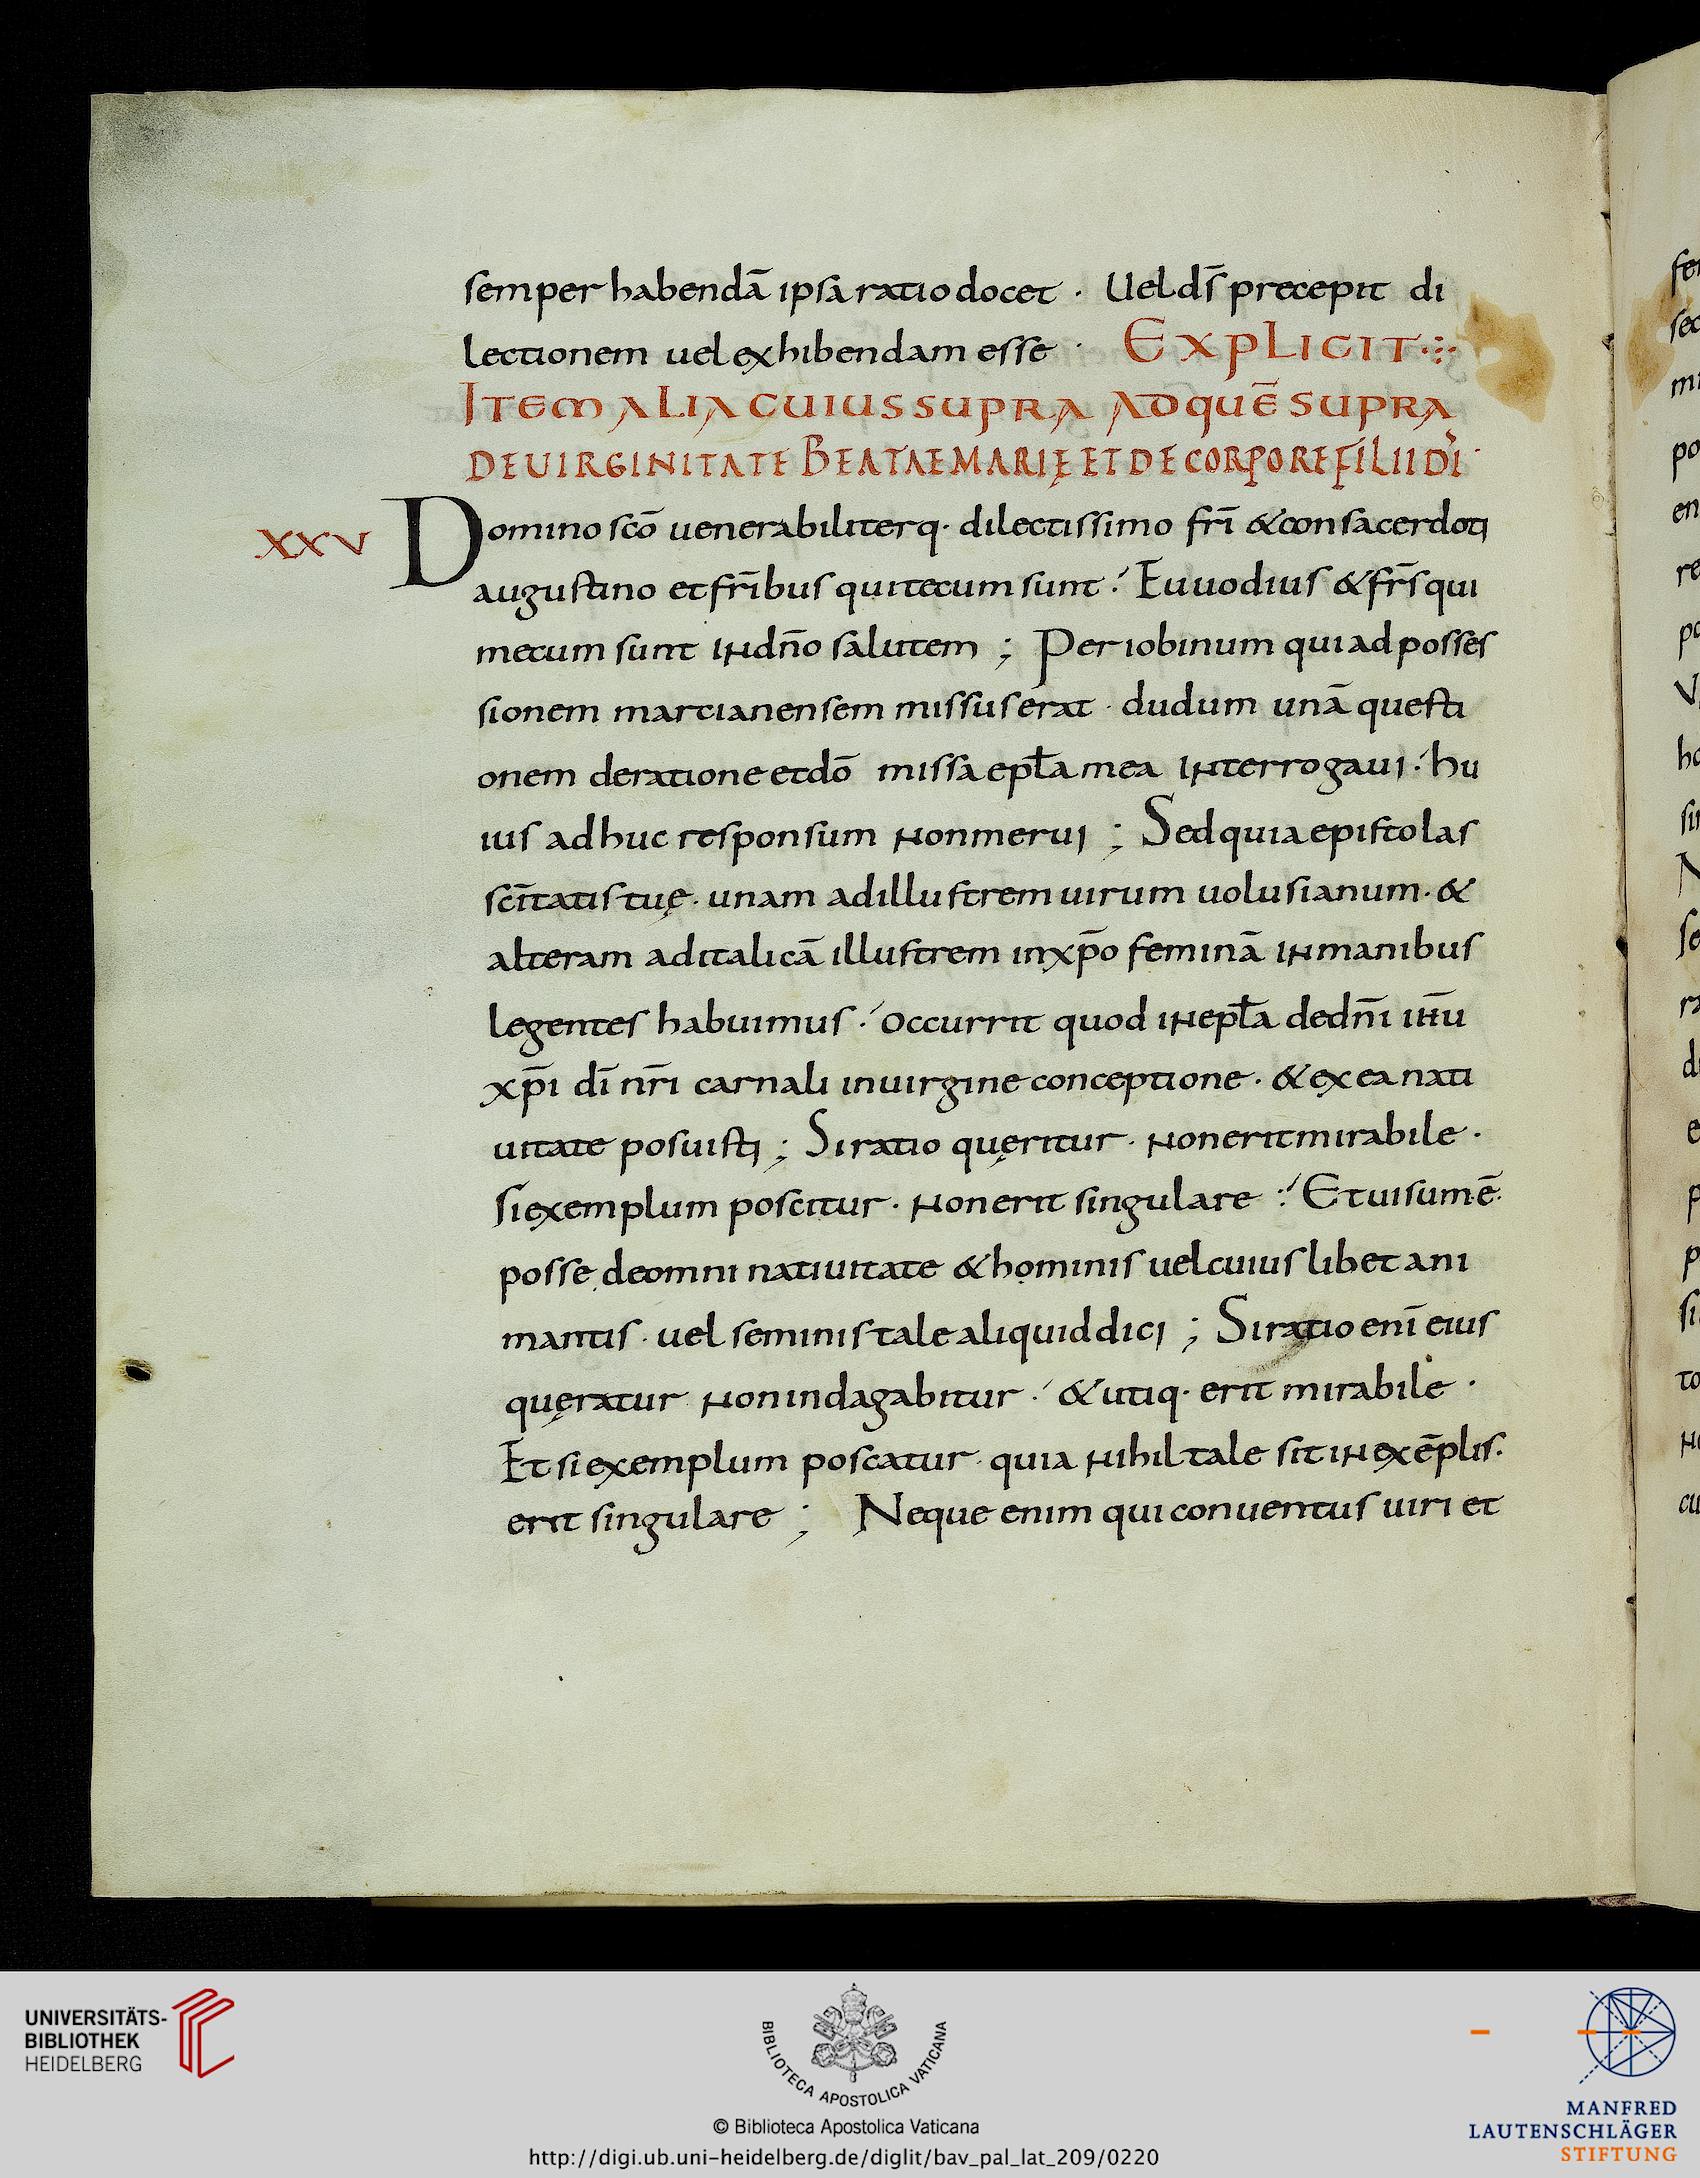 semper habendā ipsa ratio docet · Uel ds̄ precepit di
lectionem uel exhibendam esse · EXPLICIT
ITEM ALIA CUIUS SUPRA AD QUĒ SUPRA
DE UIRGINITATE BEATAE MARIĘ ET DE CORPORE FILII DI
XXV
Domino scō uenerabiliterq· dilectissimo frī & consacerdoti
augustino et frībus qui tecum sunt· Euuodius & frs̄ qui
mecum sunt in dn̄o salutem ; Per iobinum qui ad posses
sionem martianensem missus erat · dudum unā questi
onem de ratione et dō missa epła mea interrogaui· hu
ius adhuc responsum non merui ; Sed quia epistolas
scītatis tuę· unam ad illustrem uirum uolusianum· &
alteram ad italicā illustrem in xp̄o feminā in manibus
legentes habuimus· occurrit quod in epła de dn̄i ih̄u
xp̄i dī nr̄i carnali in uirgine conceptione· & ex ea nati
uitate posuisti ; Si ratio quęritur· non erit mirabile·
si exemplum poscitur· non erit singulare· Et uisum ē·
posse de omni natiuitate & hominis uel cuius libet ani
mantis · uel seminis tale aliquid dici ; Si ratio enī eius
quęratur non indagabitur· & utiq· erit mirabile ·
Et si exemplum poscatur· quia nihil tale sit in exēplis·
erit singulare ; Neque enim qui conuentus uiri et
UNIVERSITÄTS-
BIBLIOTHEK
HEIDELBERG
BIBLIOTECA APOSTOLICA VATICANA
© Biblioteca Apostolica Vaticana
http://digi.ub.uni-heidelberg.de/diglit/bav_pal_lat_209/0220
MANFRED
LAUTENSCHLÄGER
STIFTUNG